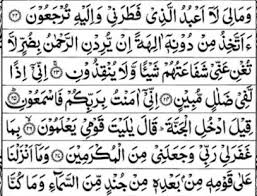 وَمَالِيَ لَآ أَعْبُدُ الَّذِي فَطَرَنِي وَإِلَيْهِ تُرْجَعُونَ ﴿٢٢﴾
ءَاَتَّخِذُ مِنْ دُونِهٖٓ اٰلِهَةً إِنْ يُّرِدْنِ الرَّحْمٰنُ بِضُرٍّ لَّا
تُغْنِ عَنِّي شَفَاعَتُهُمْ شَيْئًا وَّلَا يُنْقِذُونِ ﴿٢٣﴾ إِنِّيٓ إِذًا
لَّفِي ضَلٰلٍ مُّبِينٍ ﴿٢٤﴾ إِنِّيٓ اٰمَنْتُ بِرَبِّكُمْ فَاسْمَعُونِ ﴿٢٥﴾
قِيلَ ادْخُلِ الْجَنَّةَ قَالَ يٰلَيْتَ قَوْمِي يَعْلَمُونَ ﴿٢٦﴾ بِمَا
غَفَرَ لِي رَبِّي وَجَعَلَنِي مِنَ الْمُكْرَمِينَ ﴿٢٧﴾ وَمَآ أَنْزَلْنَا
عَلٰى قَوْمِهٖ مِنْۢ بَعْدِهٖ مِنْ جُنْدٍ مِّنَ السَّمَآءِ وَمَا كُنَّا